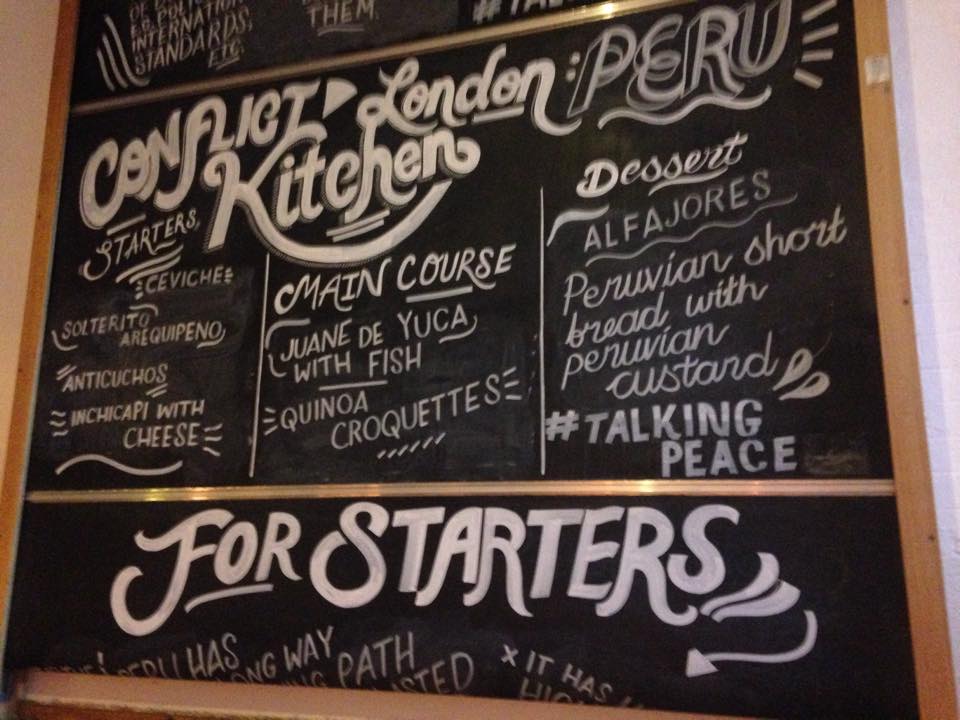 INTERNATION
STANDARDS,
ETC.
THEM.
CONFLICT London: PERU
Kitchen
STARTERS,
CEVICHE
SOLTERITO
AREQUIPENO,
ANTICUCHOS
INCHICAPI WITH
CHEESE
MAIN COURSE
JUANE DE YUCA
WITH FISH
QUINOA
CROQUETTES
Dessert
ALFAJORES
Peruvian short
bread with
peruvian
custard
#TALKING
PEACE
FOR STARTERS
PERU HAS
WAY
PATH
x IT HAS